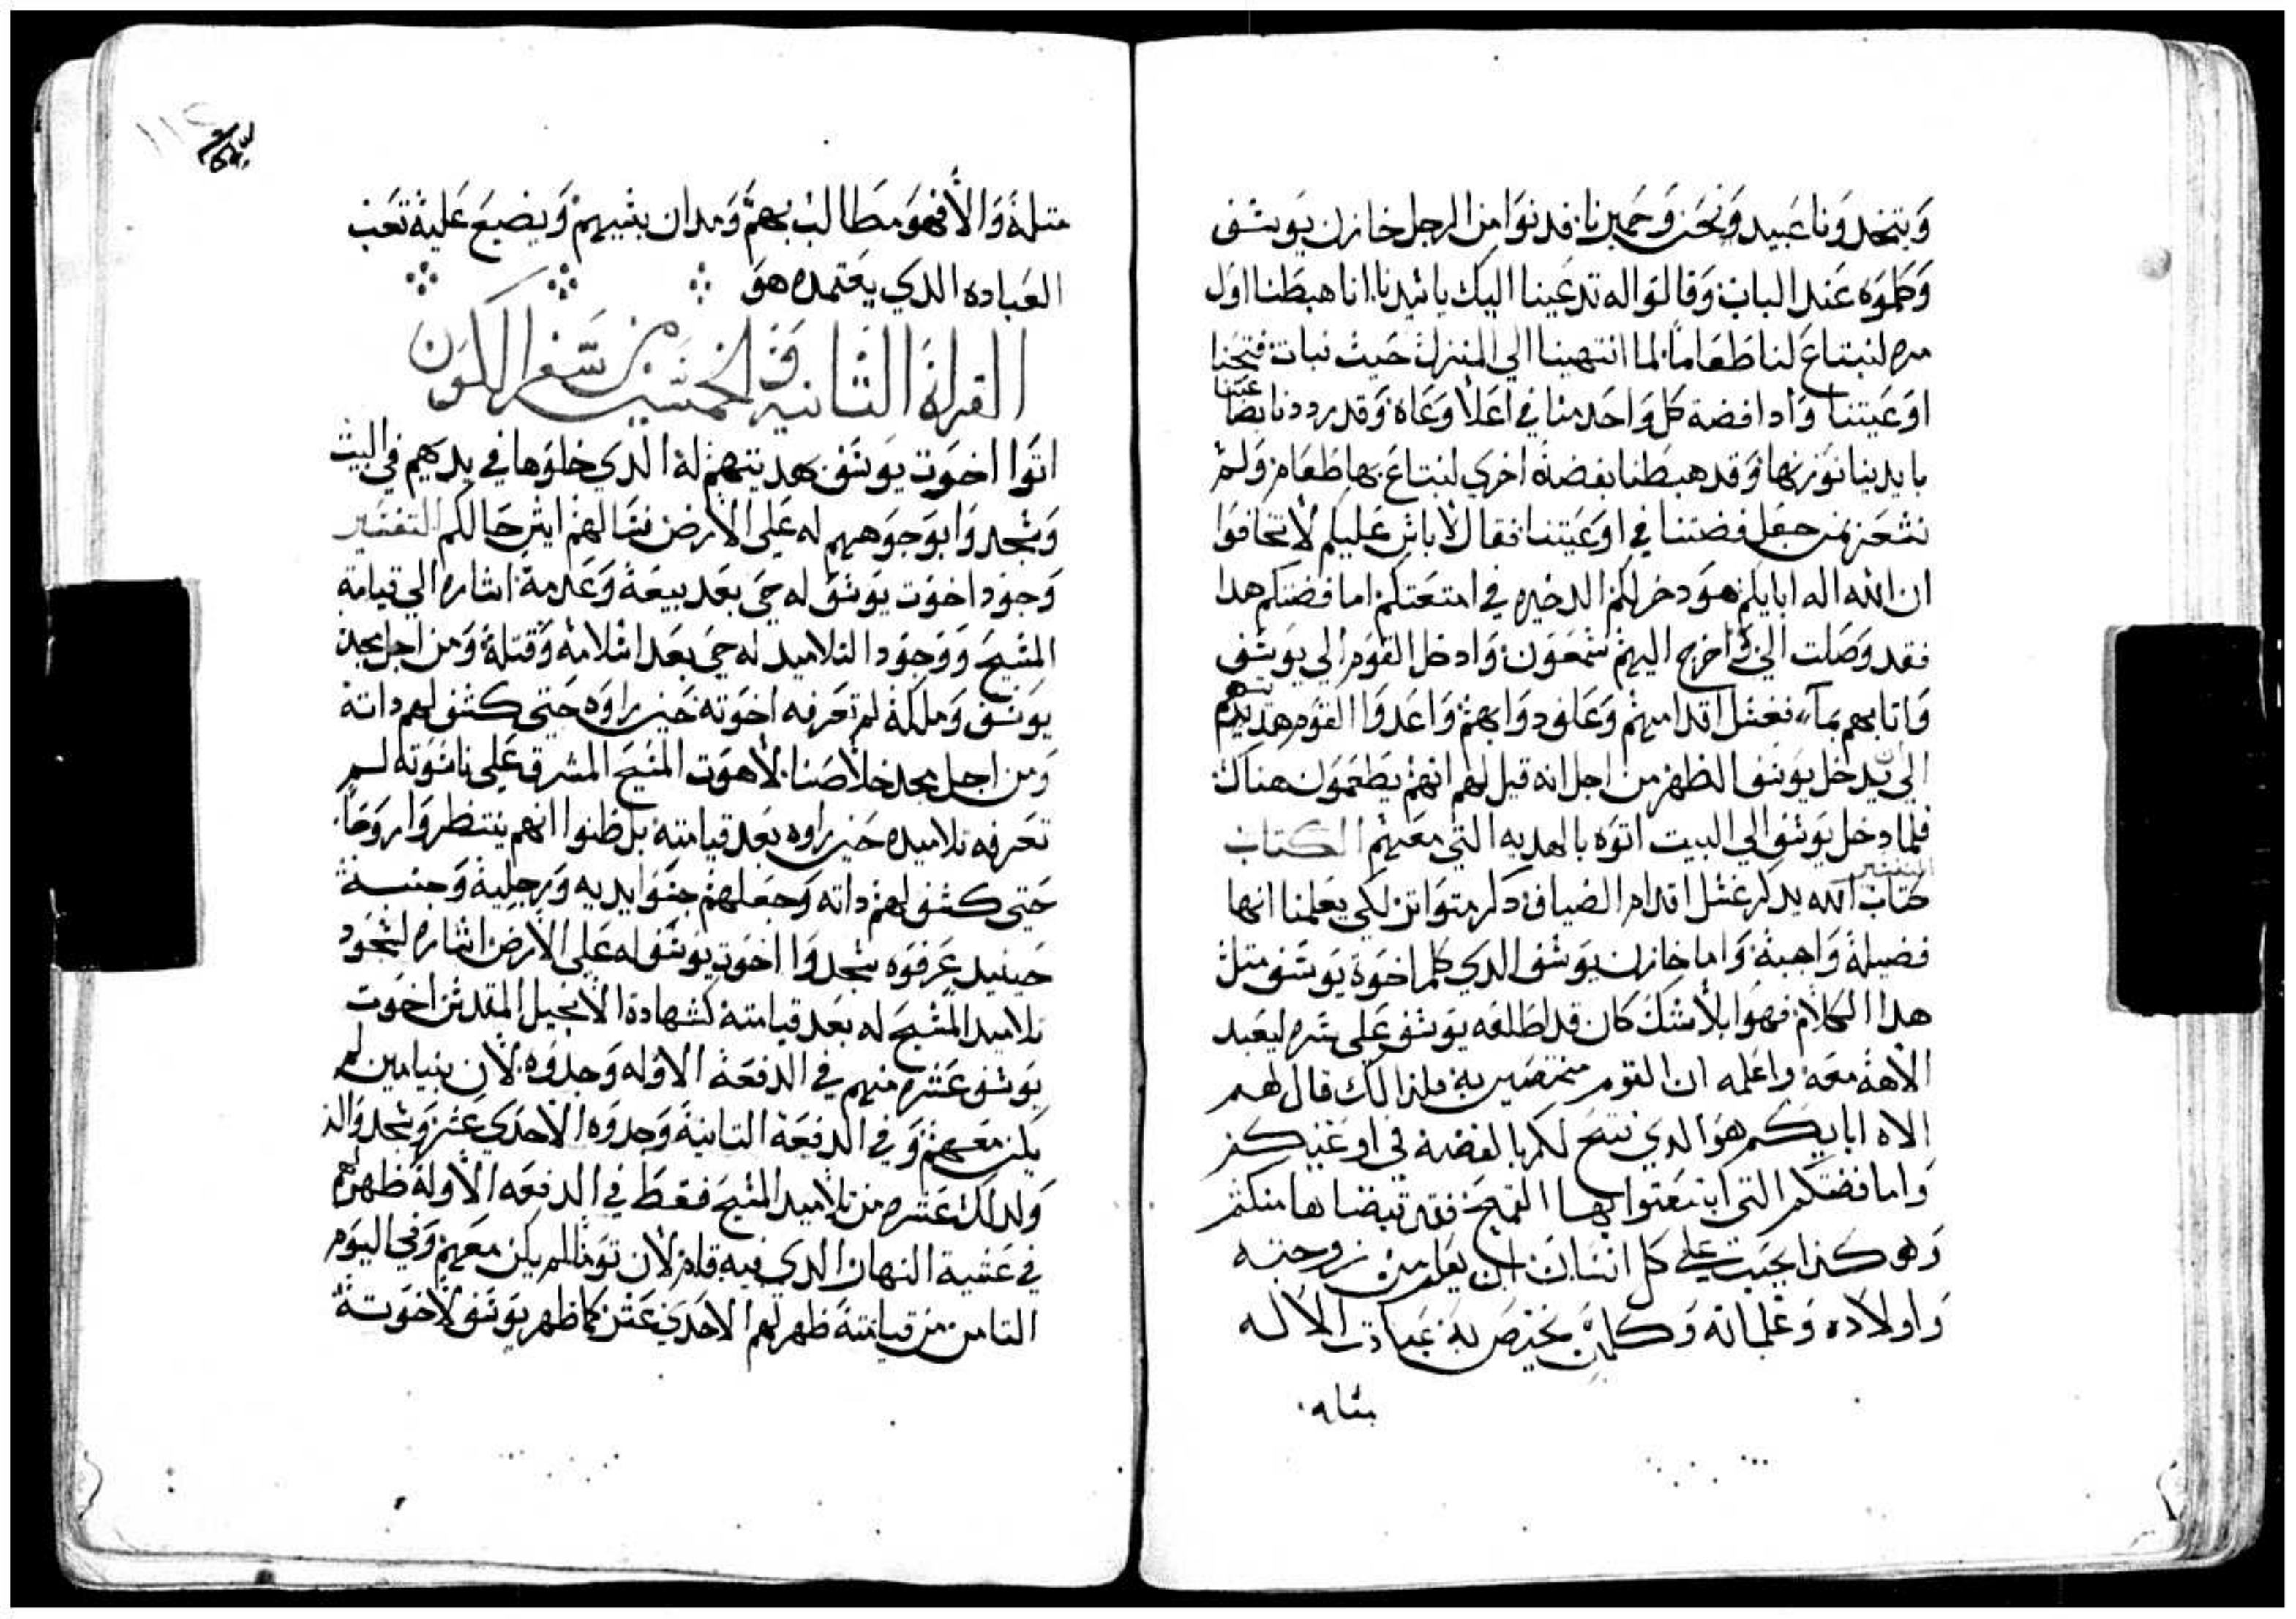 وَيتخدَونا عَبيد وَنحَن وَحَميرنا. فدنوَا من الرجل خازن يَوسَف
وَكلموَه عَند الباب وَقالوَا له تدعَينا اليك يا سَيدنا. انا هبطَنا اوَل
مره لنبتاعَ لنا طَعَاماً. لما انتهينا الي المنزل حَيث نبات فتحَنا
اوَعَيتنا وَادا فضة كل وَاحَد منا في اعَلا وَعَاة وَقد رددنا بضاعَتنا
بايدينا نوَزنها وَقد هبطَنا بفضة اخري لنبتاعَ بها طَعَام وَلم
نشعَر من جعَل فضتنا في اوَعَيتنا فقال لا باس عَليكم لا تخافوَا
ان الله اله ابايكم هوَ دخر لكم الدخيره في امتعَتكم اما فضتكم هدا
فقد وَصَلت الي وَاخرج اليهم سَمعَوَن وَادخل القوَم الي يوَسَف
وَاتا بهم بماء فغسَل اقدامهم وَعَلف دوَابهم وَاعَدوَا القوَم هديتهم
الي ان يدخل يوَسَف الظهر من اجل انه قيل لهم انهم يطَعَموَن هناك
فلما دخل يوَسَف الي البيت اتوَه بالهديه التي معَهم الكتاب
التفسير
كتاب الله يدكر غسَل اقدام الضياف دكر متوَاتر لكي يعَلمنا انها
فضيلة وَاهبة وَاما خازن يوَسَف الدي كلم اخوَة يوَسَف متل
هدا الكلام فهوَا بلا شك كان قد اطَلعَه يوَسَف عَلي سَره ليعَبد
الاهة معَه واعَلمه ان القوم مختصَين به فلدالك قال لهم
الاه ابايكم هوَ الدي نتح لكم بالفضة في اوعَيتكم
وَاما فضتكم التي ابتعَتوا بها القمح فقد قبضناها منكم
وَهو كذا يجَب علي كل انسَان ان يعَلم من زوجته
وَاولاده وَغلمانه وَكلمن يختصَ به عَبادت الاله
متله
متلة وَالا فهوَ مطَالب بهم وَمدان بسَببهم وَيضيعَ عَلية تعَب
العَباده الدي يعَتمده هوَ
القراة التانية وَالخمسَين من سَفر الكوَن
اتوَا اخوَت يوَسَف بهديتهم لة الدي خلوَها في يديهم في البيت
وَسَجدوَا بوَجوَههم له عَلي الارض فسَالهم ايش حَالكم التفسَير
وَجوَد اخوَت يوَسَف له حَي بعَد بيعَة وَعَدمة. اشاره الي قيامة
المسَيحَ وَوَجوَد التلاميد له حَي بعَد اسَلامة وَقتلة وَمن اجل مجد
يوَسَف وَملكة لم تعَرفه اخوَته حَين راوَه حَتي كشف لهم داتة
وَمن اجل مجد خلاصَنا. لاهوَت المسَيحَ المشرق عَلي ناسَوَته لم
تعَرفه تلاميده حَين راوه بعَد قيامتة بل ظنوا انهم ينتظروَا روَحَاً.
حَتي كشف لهم داته وَجعَلهم جسَوَا يديه وَرجلية وَجنبة
حَينيد عَرفوَه سَجدوَا اخوَت يوَسَف له عَلي الارض اشاره لسَجوَد
تلاميد المسَيحَ له بعَد قيامتة كشهادة الانجيل المقدسَ اخوَت
يوَسَف عَشره منهم في الدفعَة الاوَله وَجدوَه. لان بنيامين لم
يكن معَهم وَفي الدفعَة التانية وَجدوَه الاحَدي عَشر وَسَجدوَا له
وَلدلك عَشره من تلاميد المسَيحَ فقطَ في الدفعَه الاوَلة ظهر لهم
في عَشية النهار الدي فيه قام لان توَما لم يكن معَهم وَفي اليوَم
التامن من قيامتة ظهر لهم الاحَدي عَشر كما ظهر يوَسَف لاخوَتة